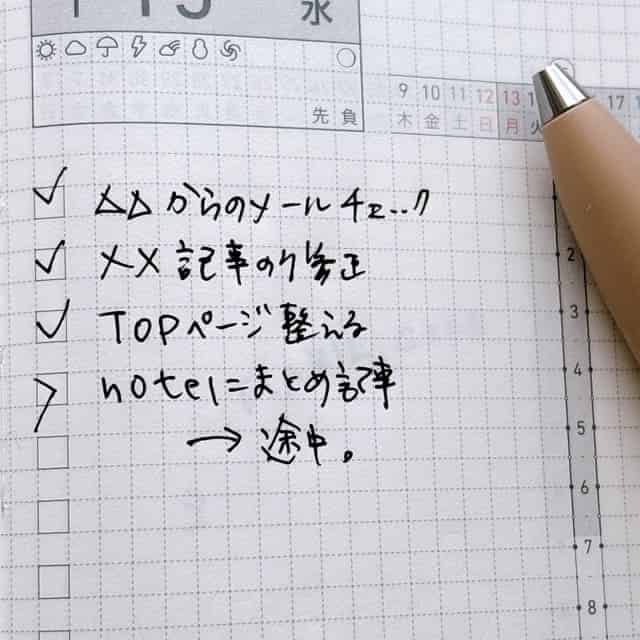 15 水
先負
9 10 11 12 13 17 1
木 金 土 日 月 火
△△からのメールチェック
××記事の修正
TOPページ整える
noteにまとめ記事
→ 途中。
2
3
4
5
6
7
8